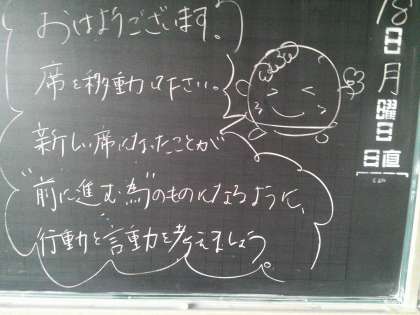 おはようございます。
席を移動して下さい。
新しい席になったことが
"前に進む為"のものになるように、
行動と言動を考えましょう。
8
日
月
曜
日
日直